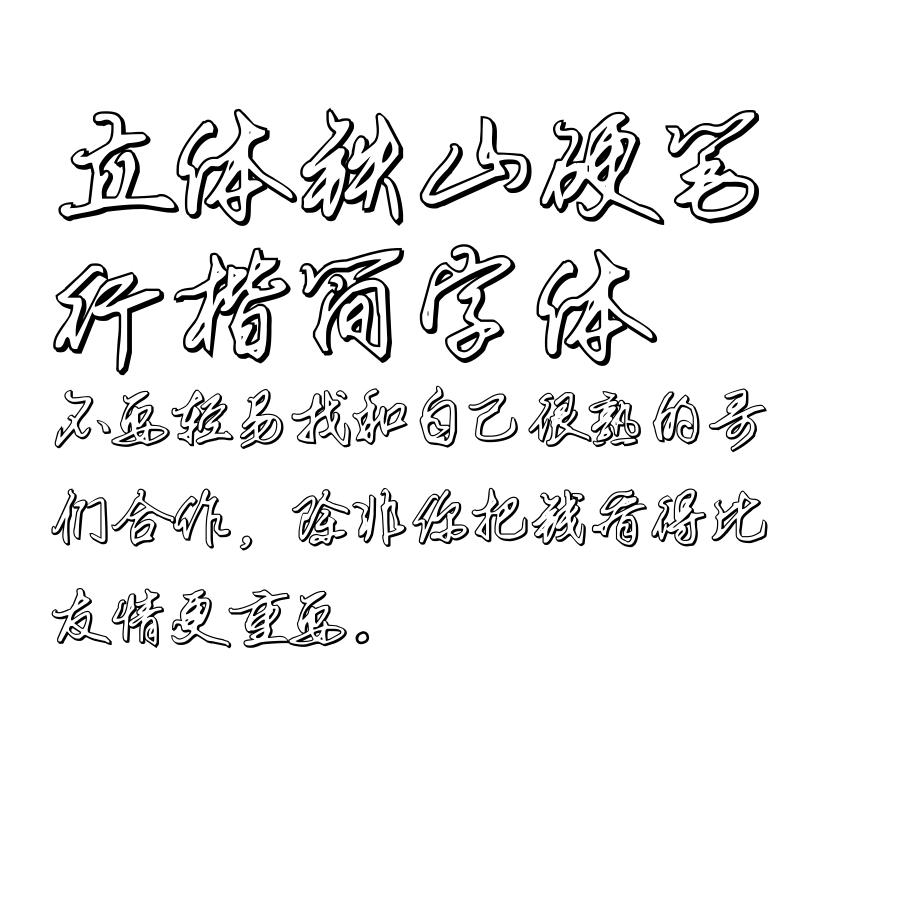 立体铁山硬笔
行楷简字体
不要轻易找和自己很熟的哥
们合作，除非你把钱看得比
友情更重要。